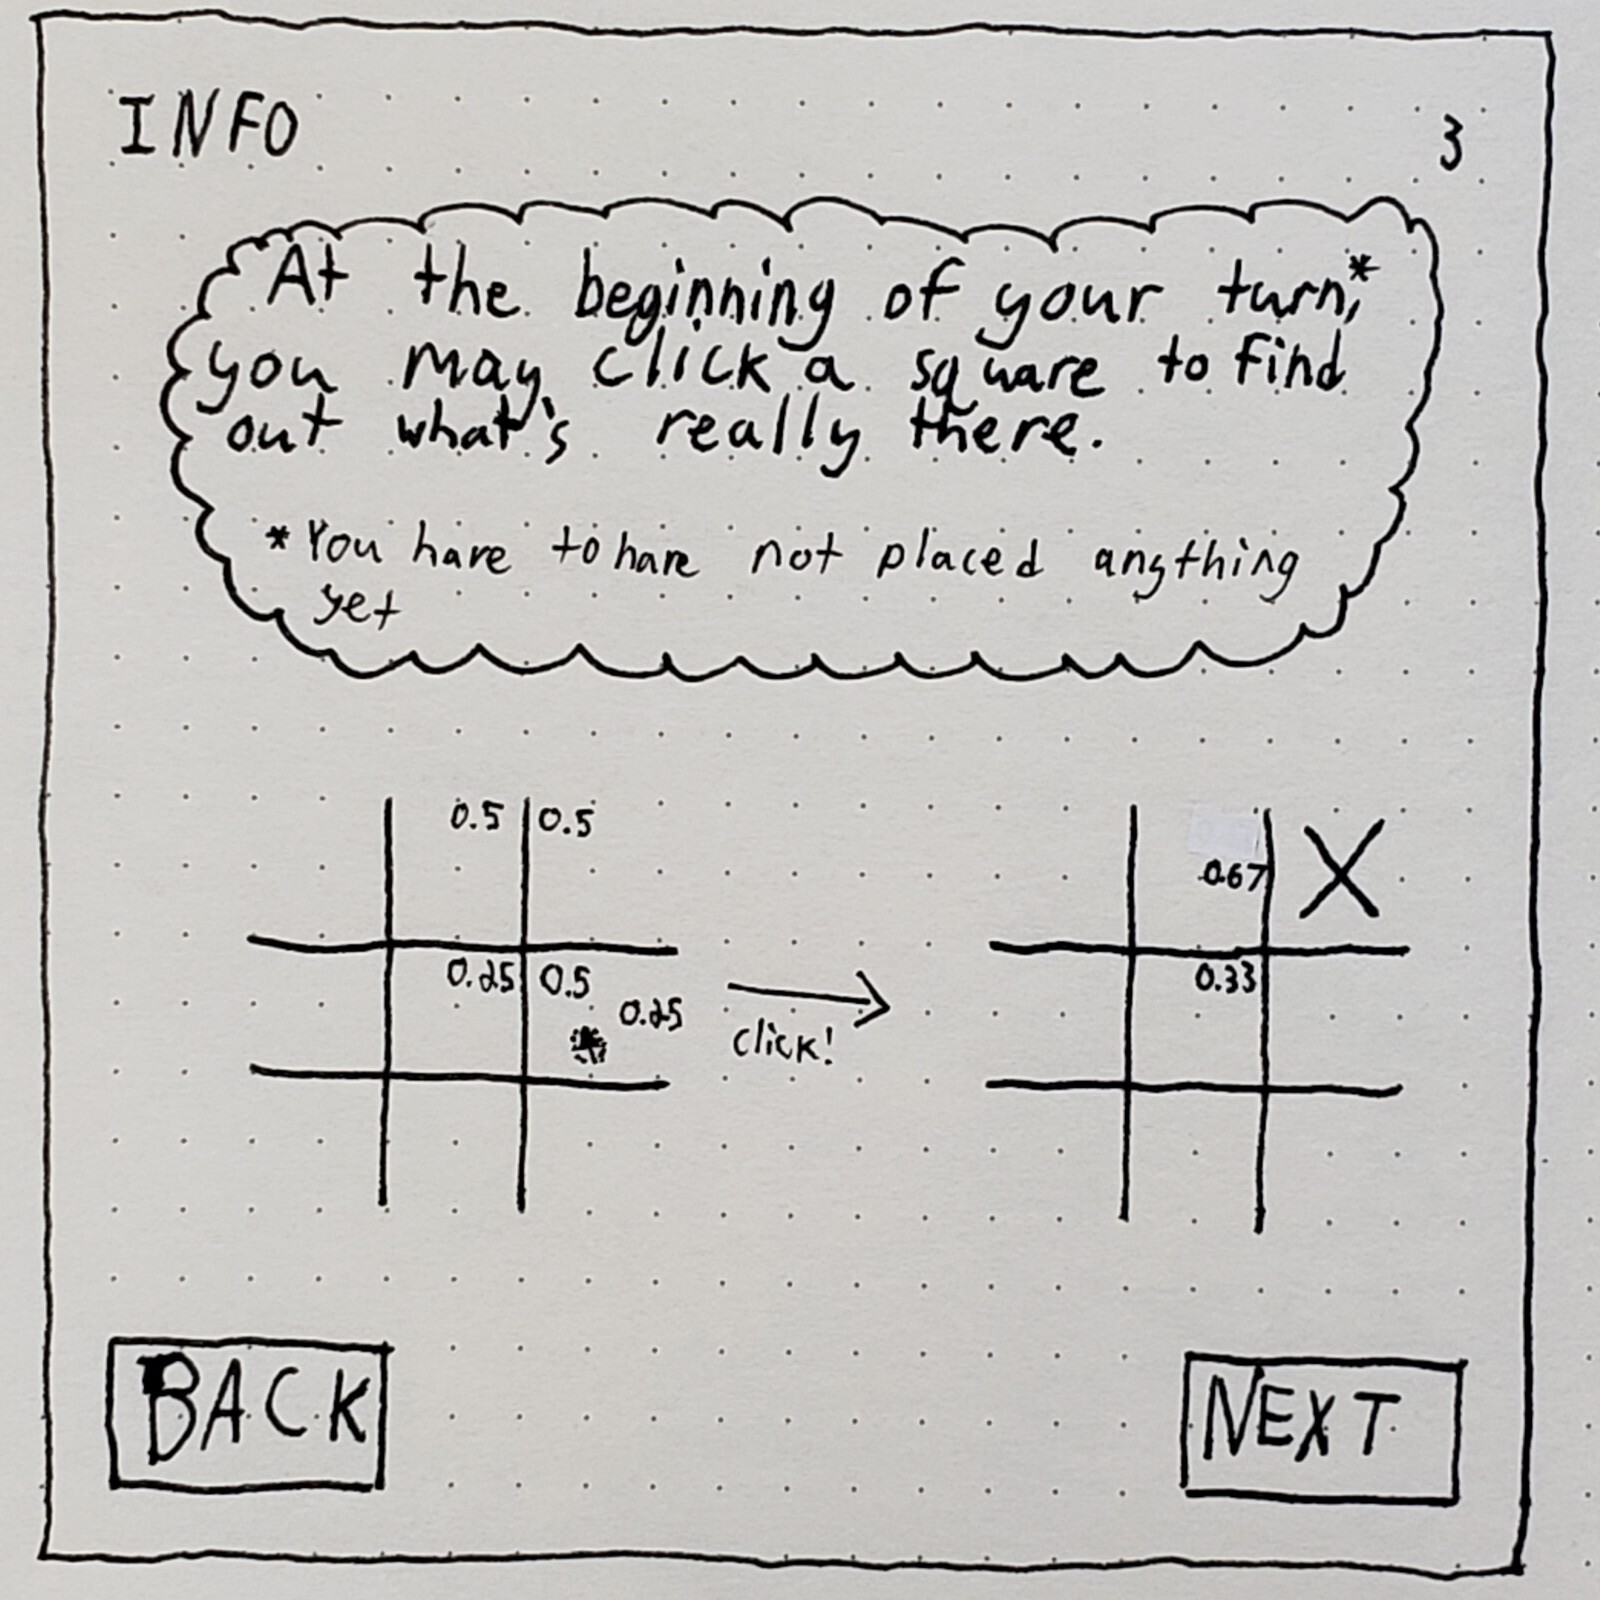 INFO
3
At the beginning of your turn,*
you may click a square to find
out what's really there.
*You have to have not placed anything
yet
0.5 0.5
0.25 0.5
0.25
click!
0.67 X
0.33
BACK
NEXT